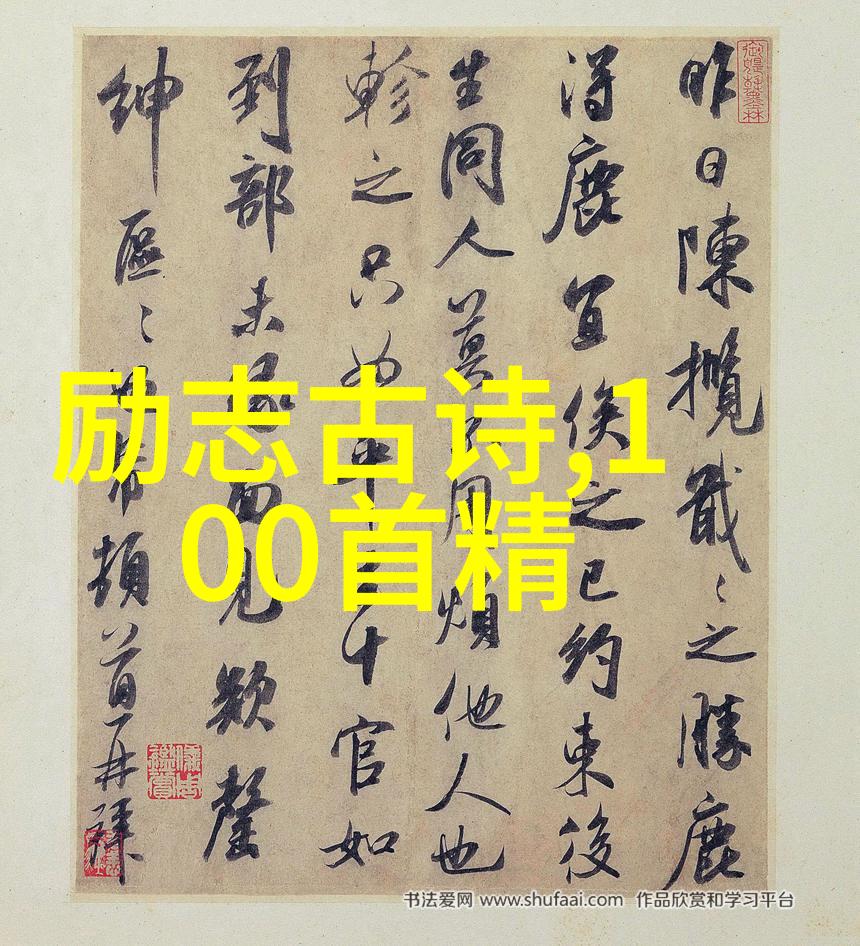 昨日陳攬戢〻之勝鹿
得鹿宜俟之已約束後
生同人莫不用煩他人也
軫之只十官如
到部未緣面見欵罄
紳區〻希頓首再拜
励志古诗,1
00首精
书法爱网 www.shufaai.com 作品欣赏和学习平台